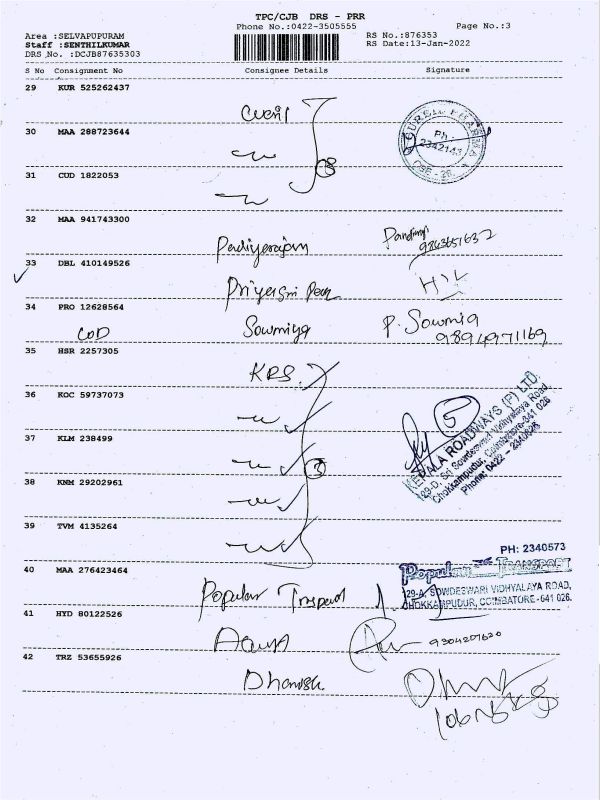 TPC/CJB DRS - PRR
Phone No.:0422-3505555
Page No.:3
Area :SELVAPUPURAM
Staff :SENTHILKUMAR
DRS No. :DCJB87635303
RS No.:876353
RS Date:13-Jan-2022
S No Consignment No Consignee Details Signature
29 KUR 525262437
30 MAA 288723644
Ph.:
2342143
CBE - 26.
31 CUD 1822053
32 MAA 941743300
Padiyerajan
9843651632
33 DBL 410149526
Priyasri
34 PRO 12628564
COD Sowmiya P. Sowmia
9894971169
35 HSR 2257305
KRS
36 KOC 59737073
37 KLM 238499
5
KERALA ROADWAYS (P) LTD.
129-D, Sri Sowdeswari Vidhyalaya Road,
Chokkampudur, Coimbatore-641 026
Phone: 0422 - 2340626
38 KNM 29202961
39 TVM 4135264
40 MAA 276423464
PH: 2340573
Popular TRANSPORT
129-A, SOWDESWARI VIDHYALAYA ROAD,
CHOKKAMPUDUR, COIMBATORE - 641 026.
Popular
41 HYD 80122526
42 TRZ 53655926